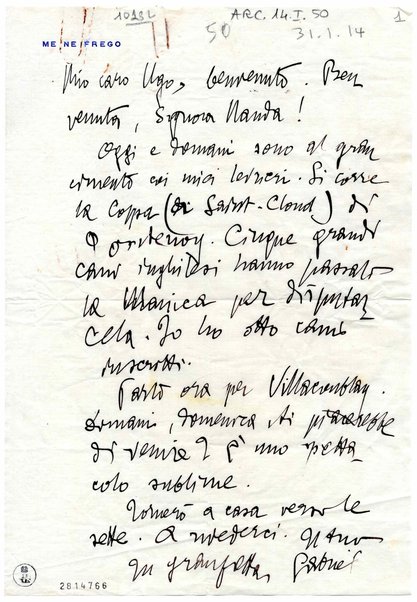 1018L ARC. 14.I.50
50 31.1.14 1
ME NE FREGO
Mio caro Ugo, benvenuto. Ben
venuta, Signora Nanda!
Oggi e domani sono al gran
cimento coi miei levrieri. Si corre
la Coppa (di Saint-Cloud) di
Cinque grandi
cani inglesi hanno passato
la Manica per disputar
cela. Io ho otto cani
inscritti.
Parto ora per Villacoublay.
Domani, domenica, ti piacerebbe
di venire? È uno spetta
colo sublime.
Tornerò a casa verso le
sette. A rivederci. Il tuo
in gran fretta, Gabriel
2814766